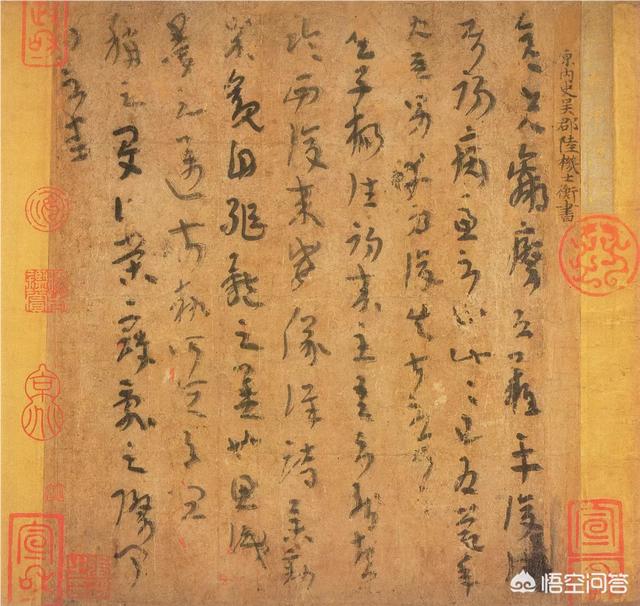 晉內史吳郡陸機士衡書
彥先羸瘵恐難平復往
屬初病慮不止此此已為慶承
使唯男幸為復失前憂耳
吳子楊往初來主吾不能盡
臨西復來威儀詳跱舉動
成觀自軀體之美也思識
量之邁前執所恒有宜
稱之夏伯榮寇亂之際聞
問不悉
悟空问答